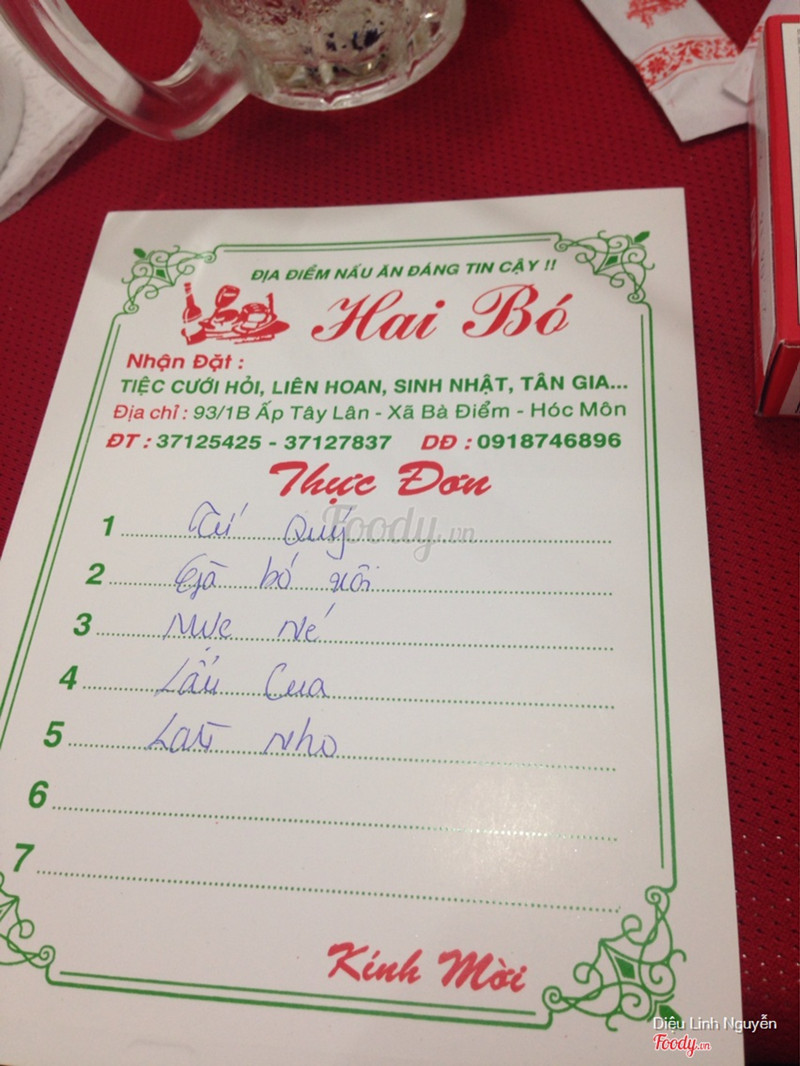 ĐỊA ĐIỂM NẤU ĂN ĐÁNG TIN CẬY !!
Hai Bó
Nhận Đặt :
TIỆC CƯỚI HỎI, LIÊN HOAN, SINH NHẬT, TÂN GIA...
Địa chỉ : 93/1B Ấp Tây Lân - Xã Bà Điểm - Hóc Môn
ĐT : 37125425 - 37127837 DĐ : 0918746896
Thực Đơn
1 Tứ Quý
2 Gà bó xôi
3 Mực né
4 Lẩu Cua
5 Lat nho
6
7
Kính Mời
Foody.vn
Diệu Linh Nguyễn
Foody.vn